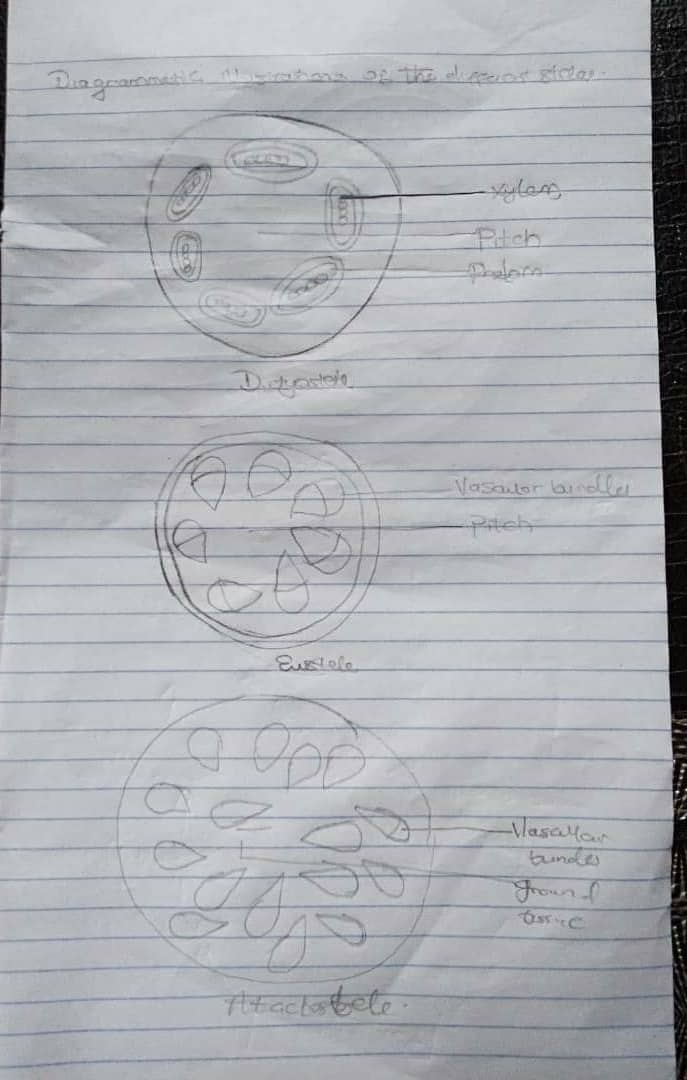 Diagrammatic illustrations of the different steles.
xylem
Pitch
Pholom
Dictyostele
Vascular bundles
Pitch
Eustele
Vascular
bundes
ground
tissue
Atactostele.